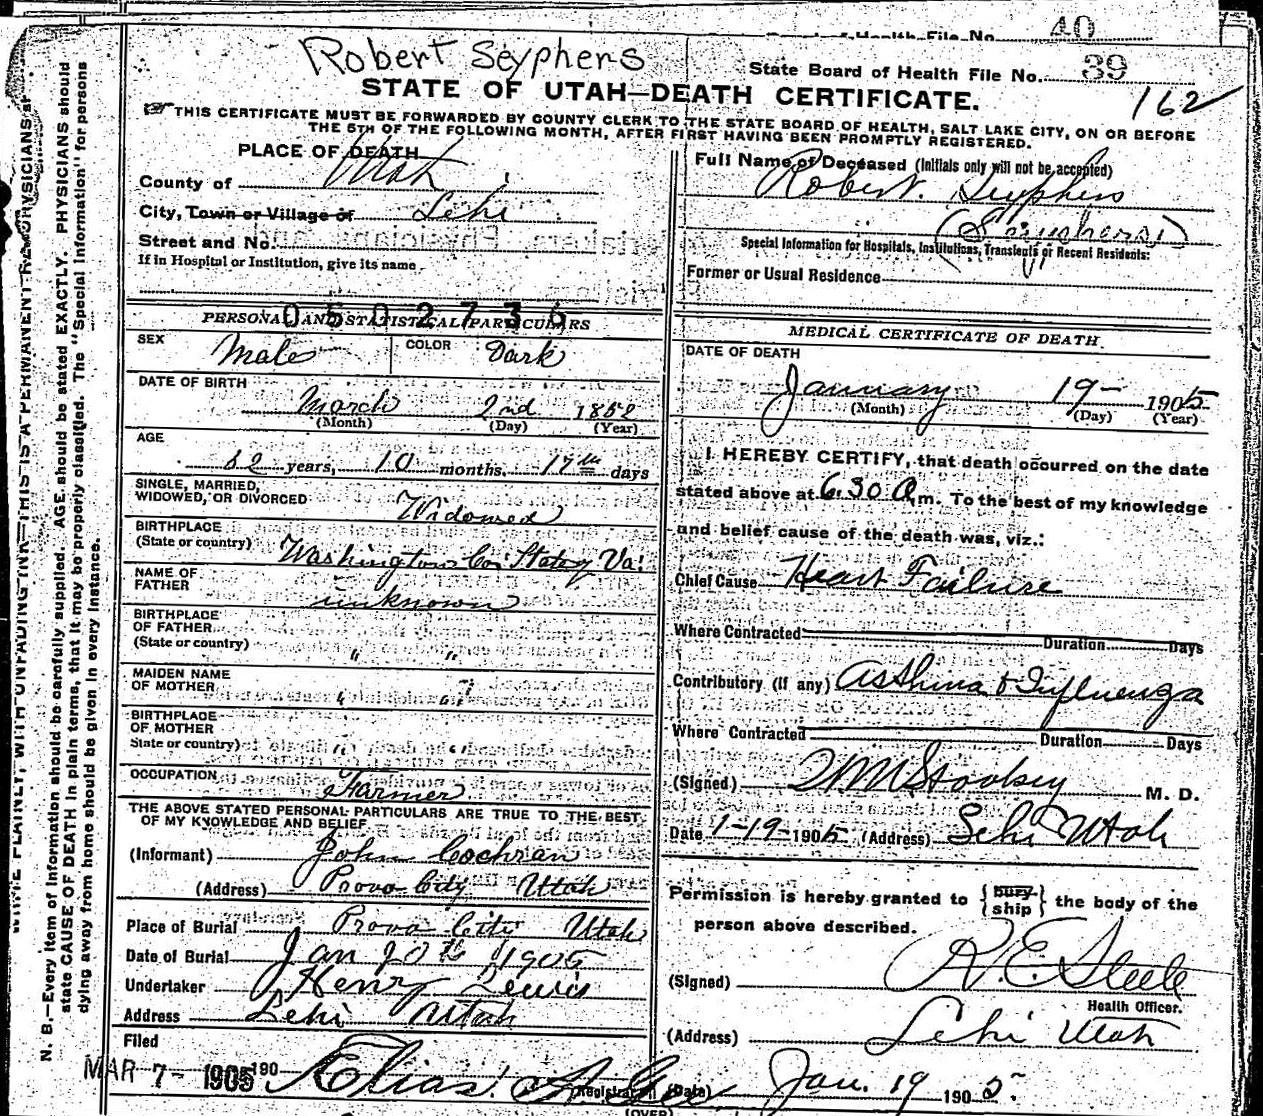 40
Health File No.
Robert Seyphers
State Board of Health File No. 39
STATE OF UTAH—DEATH CERTIFICATE.
162
THIS CERTIFICATE MUST BE FORWARDED BY COUNTY CLERK TO THE STATE BOARD OF HEALTH, SALT LAKE CITY, ON OR BEFORE
THE 5TH OF THE FOLLOWING MONTH, AFTER FIRST HAVING BEEN PROMPTLY REGISTERED.
PLACE OF DEATH
County of Utah
City, Town or Village of Lehi
Street and No.
If in Hospital or Institution, give its name
0502736
PERSONAL AND STATISTICAL PARTICULARS
SEX Male COLOR Dark
DATE OF BIRTH
March 2nd 1852
(Month) (Day) (Year)
AGE
52 years, 10 months, 17th days
SINGLE, MARRIED,
WIDOWED, OR DIVORCED Widowed
BIRTHPLACE
(State or country) Washington Co. State of Va.
NAME OF
FATHER unknown
BIRTHPLACE
OF FATHER
(State or country) " "
MAIDEN NAME
OF MOTHER " "
BIRTHPLACE
OF MOTHER
State or country) " "
OCCUPATION Farmer
THE ABOVE STATED PERSONAL PARTICULARS ARE TRUE TO THE BEST
OF MY KNOWLEDGE AND BELIEF
(Informant) John Cochran
(Address) Provo City Utah
Place of Burial Provo City Utah
Date of Burial Jan 20th 1905
Undertaker Henry Lewis
Address Lehi Utah
Filed
MAR 7- 1905 190 Elias A
Registrar
Full Name of Deceased (Initials only will not be accepted)
Robert Seyphers
Special Information for Hospitals, Institutions, Transients or Recent Residents:
Former or Usual Residence
MEDICAL CERTIFICATE OF DEATH.
DATE OF DEATH
January 19- 1905
(Month) (Day) (Year)
I HEREBY CERTIFY, that death occurred on the date
stated above at 6.30 A m. To the best of my knowledge
and belief cause of the death was, viz.:
Chief Cause Heart Failure
Where Contracted Duration Days
Contributory (if any) Asthma & Influenza
Where Contracted Duration Days
(Signed) Stookey M. D.
Date 1-19-1905 (Address) Lehi Utah
Permission is hereby granted to {bury
ship} the body of the
person above described.
(Signed) R E Steele
Health Officer.
(Address) Lehi Utah
(Date) Jan. 19 1905.
(OVER)
WRITE PLAINLY, WITH UNFADING INK—THIS IS A PERMANENT RECORD
N. B.—Every item of information should be carefully supplied. AGE should be stated EXACTLY. PHYSICIANS should
state CAUSE OF DEATH in plain terms, that it may be properly classified. The "Special Information" for persons
dying away from home should be given in every instance.